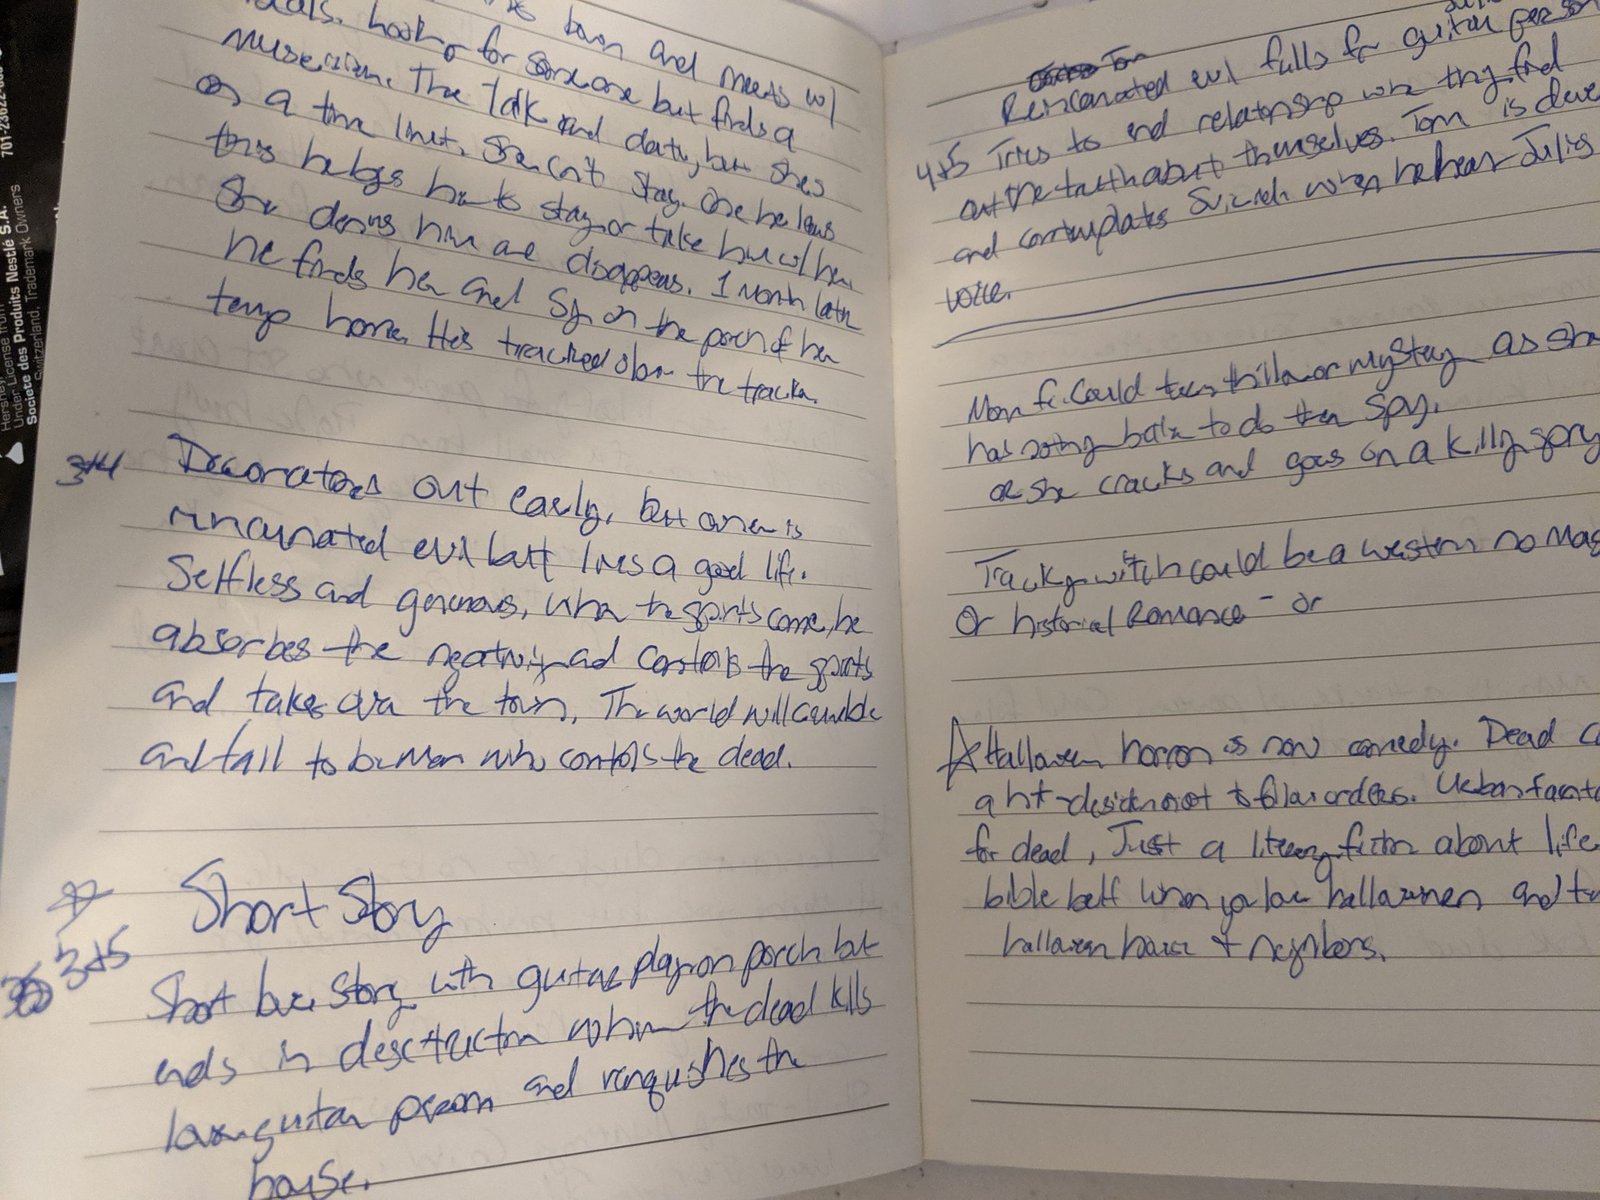 town and meets w/
locals. Looking for someone but finds a
musician. The talk and date, but she's
on a time limit. She can't stay. One he
this he begs her to stay or take him w/ her.
She denies him and disappears. 1 month late
he finds her and sy on the porch of her
temp home. He's tracked down the tracker.
3+4 Decorations out early, but owner is
reincarnated evil but lives a good life.
Selfless and generous, when the spirits come, he
absorbes the negativity and controls the spirits
and takes over the town. The world will crumble
and fall to be man who controls the dead.
Short Story
3+5
Short love story with guitar play on porch but
ends in desctructon when the dead kills
love guitar person and vanquishes the
house.
Tom
Reincarnated evil falls for guitar person
4+5 Tries to end relationship when they find
out the truth about themselves. Tom is
and contemplates when he hear Julis
voice.
More fc. Could turn thriller or mystery as she
has nothing better to do then spy.
or she cracks and goes on a killing spry
Tracking witch could be a western no mag
or historical Romance - or
Halloween horror is now comedy. Dead
a ht - deside not to follow orders. Urban
for dead, Just a literary fiction about life
bible belt when you love halloween and
halloween house + neighbors.
701-23822-
Hershey
Under License from
Societe des Produits Nestlé S.A.
Switzerland, Trademark Owners